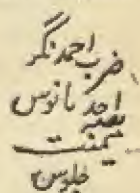 ضرب احمدنگر
احد مانوس
میمنت
جلوس